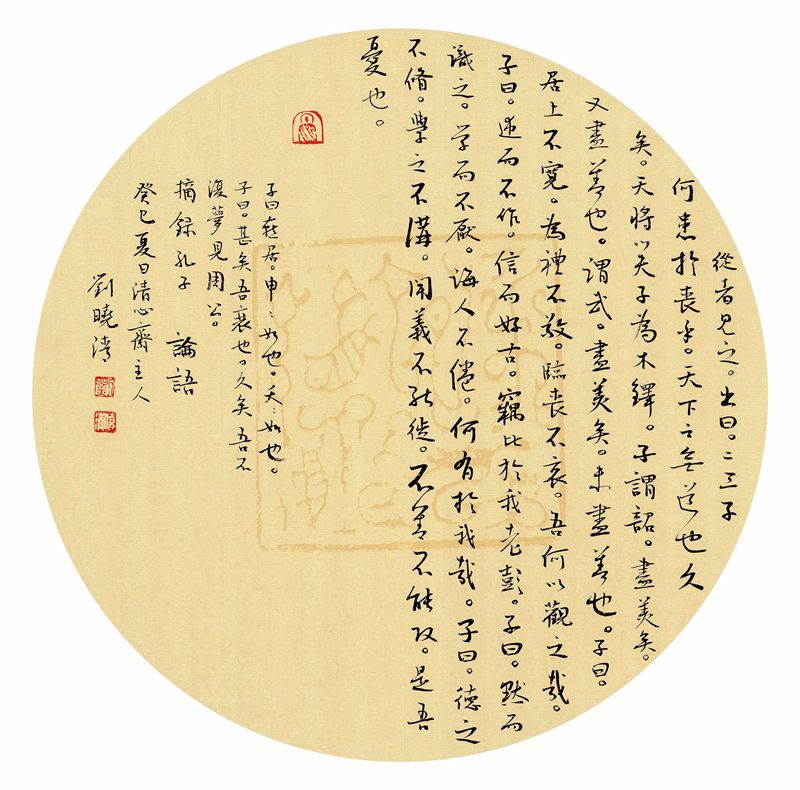 從者見之。出曰。二三子
何患於喪乎。天下之無道也久
矣。天將以夫子為木鐸。子謂韶。盡美矣。
又盡善也。謂武。盡美矣。未盡善也。子曰。
居上不寬。為禮不敬。臨喪不哀。吾何以觀之哉。
子曰。述而不作。信而好古。竊比於我老彭。子曰。默而
識之。学而不厭。誨人不倦。何有於我哉。子曰。德之
不脩。學之不講。聞義不能徙。不善不能改。是吾
憂也。
子曰燕居。申〻如也。夭〻如也。
子曰。甚矣吾衰也。久矣吾不
復夢見周公。
摘錄孔子 論語
癸巳夏日清心齋主人
劉曉